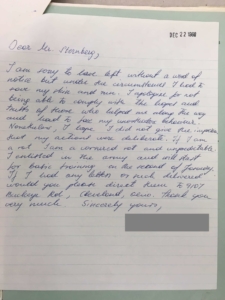 DEC 22 1966
Dear Mr. Nornberg,
I am sorry to have left without a word of
notice but under the circumstances I had to
save my skin and run. I apologize for not
being able to comply with the hopes and
faith of those who helped me along the way
and I had to for my
Nonetheless, I hope I did not give the impression
that my actions were deliberate. If I am
a rat I am a cornered rat and unpredictable.
I enlisted in the army and will start
for basic training on the second of January.
If I had any letters or such delivered
would you please direct them to 9107
Buckeye Rd, Cleveland, Ohio. Thank you
very much. Sincerely yours,